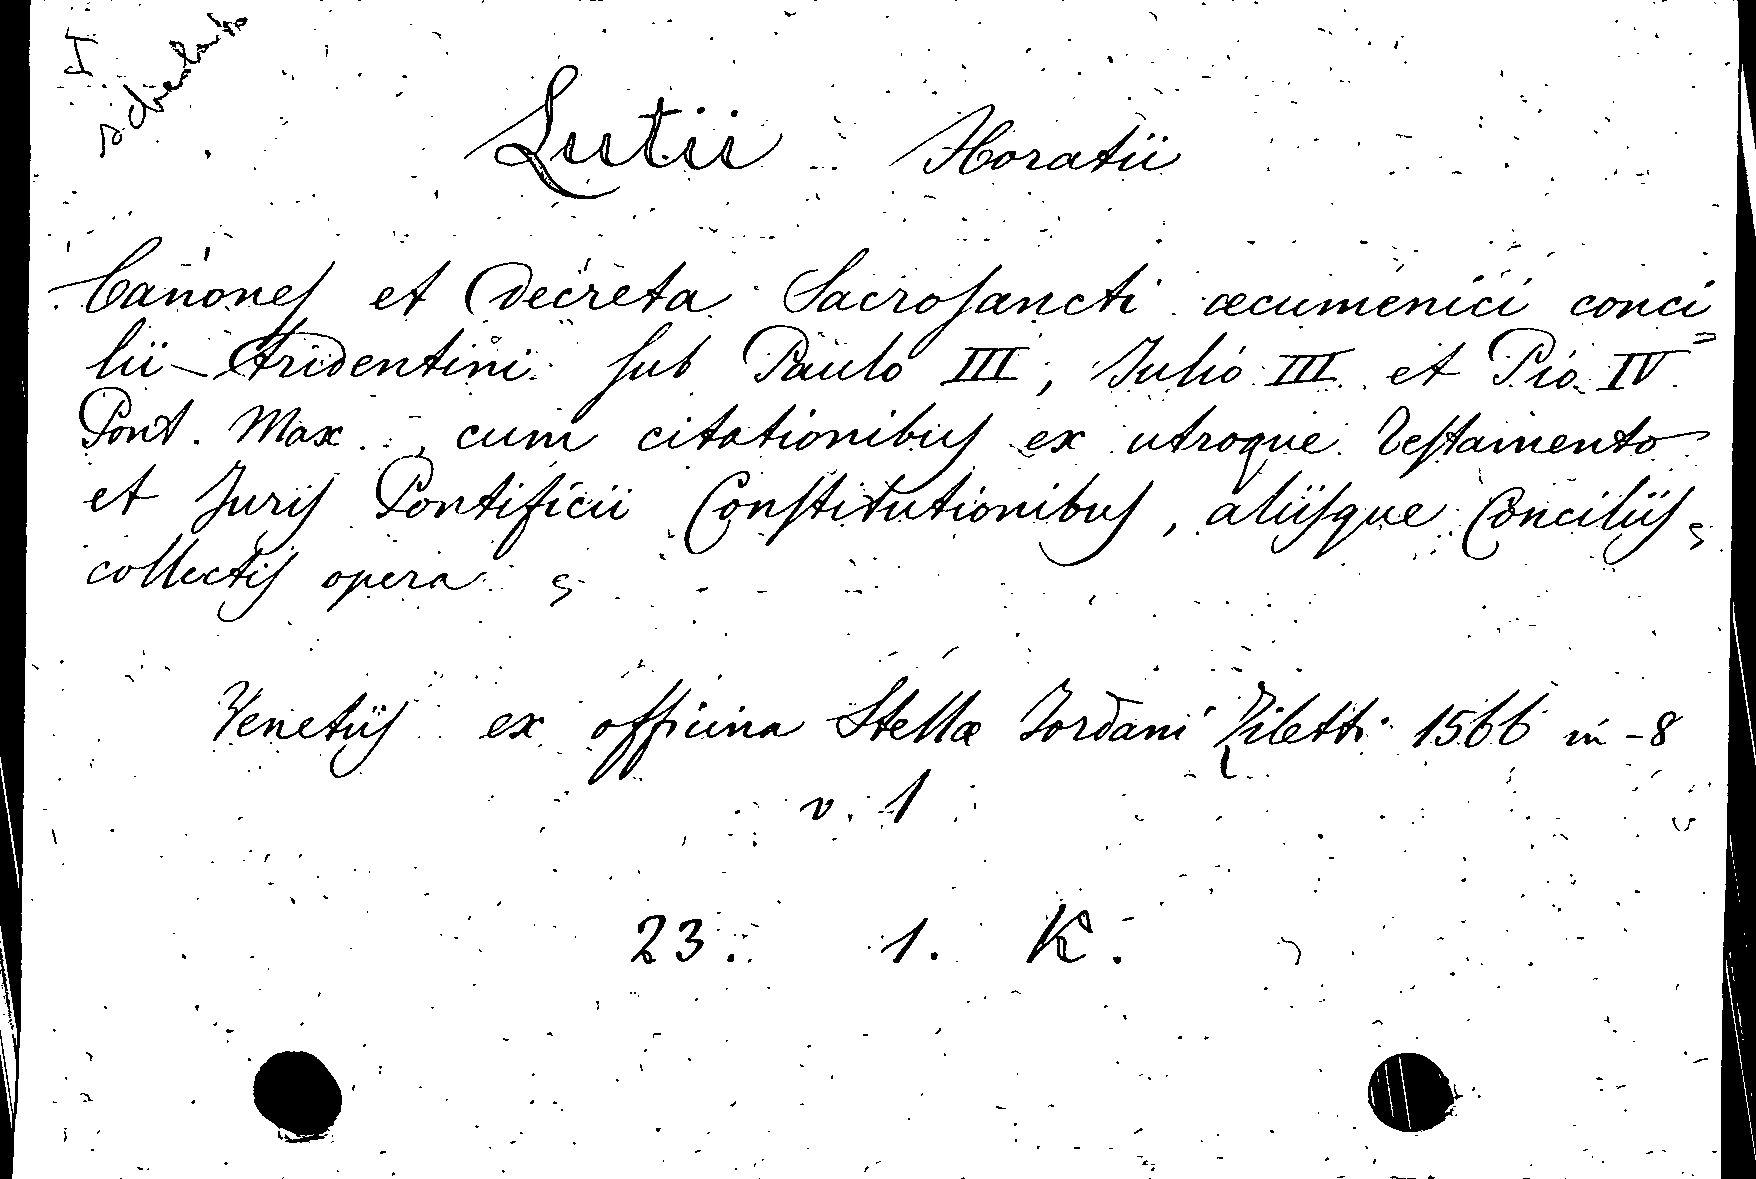 schedato
Lutii Horatii
Canones et Decreta Sacrosancti œcumenici conci
lii - Tridentini sub Paulo III, Julio III et Pio IV
Pont. Max. cum citationibus ex utroque Testamento
et Juris Pontificii Constitutionibus, aliisque Conciliis
collectis opera
Venetiis ex officina Stellæ Jordani Ziletti 1566 in-8
v. 1
23. 1. K.